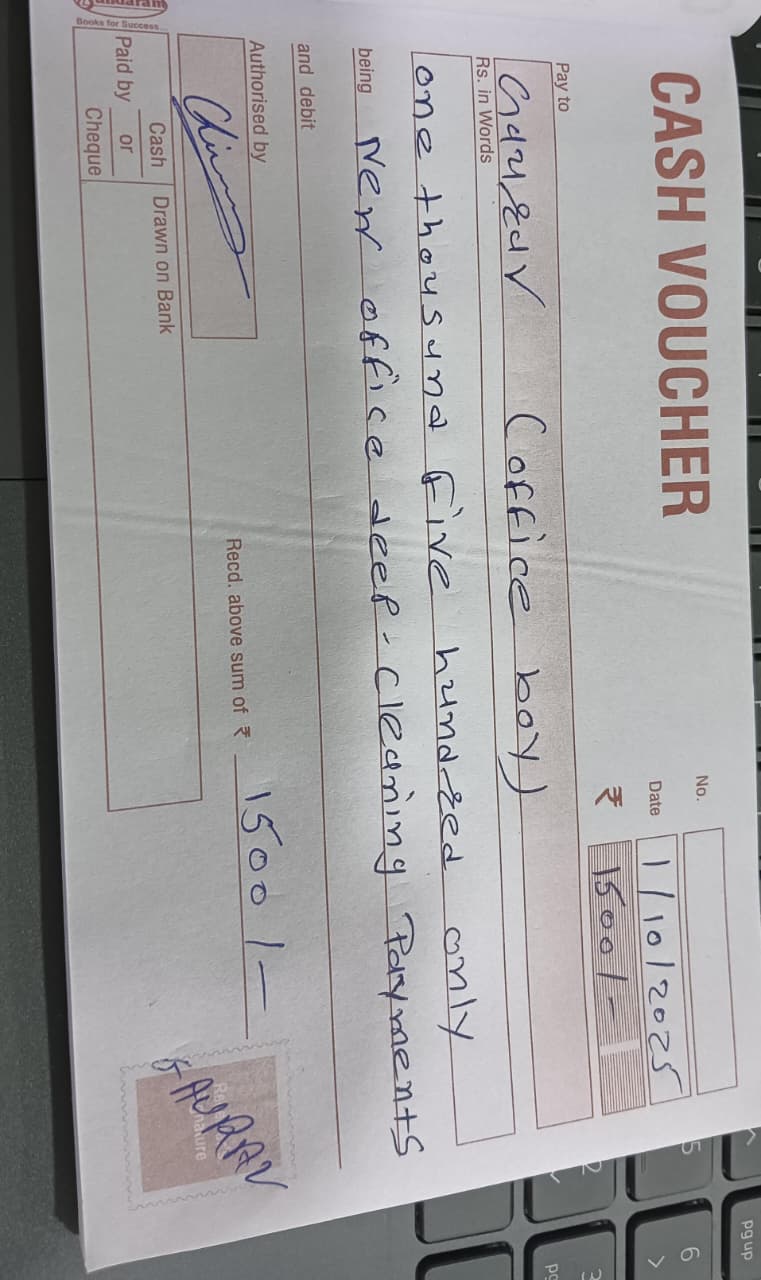 CASH VOUCHER
No.
Date 1/10/2025
₹ 1500/-
Pay to
Gaurav (office boy)
Rs. in Words
one thousand five hundred only
being New office deep-cleaning Payments
and debit
Authorised by
Recd. above sum of ₹ 1500/-
GAURAV
Sundaram
Books for Success
Paid by Cash or Cheque
Drawn on Bank